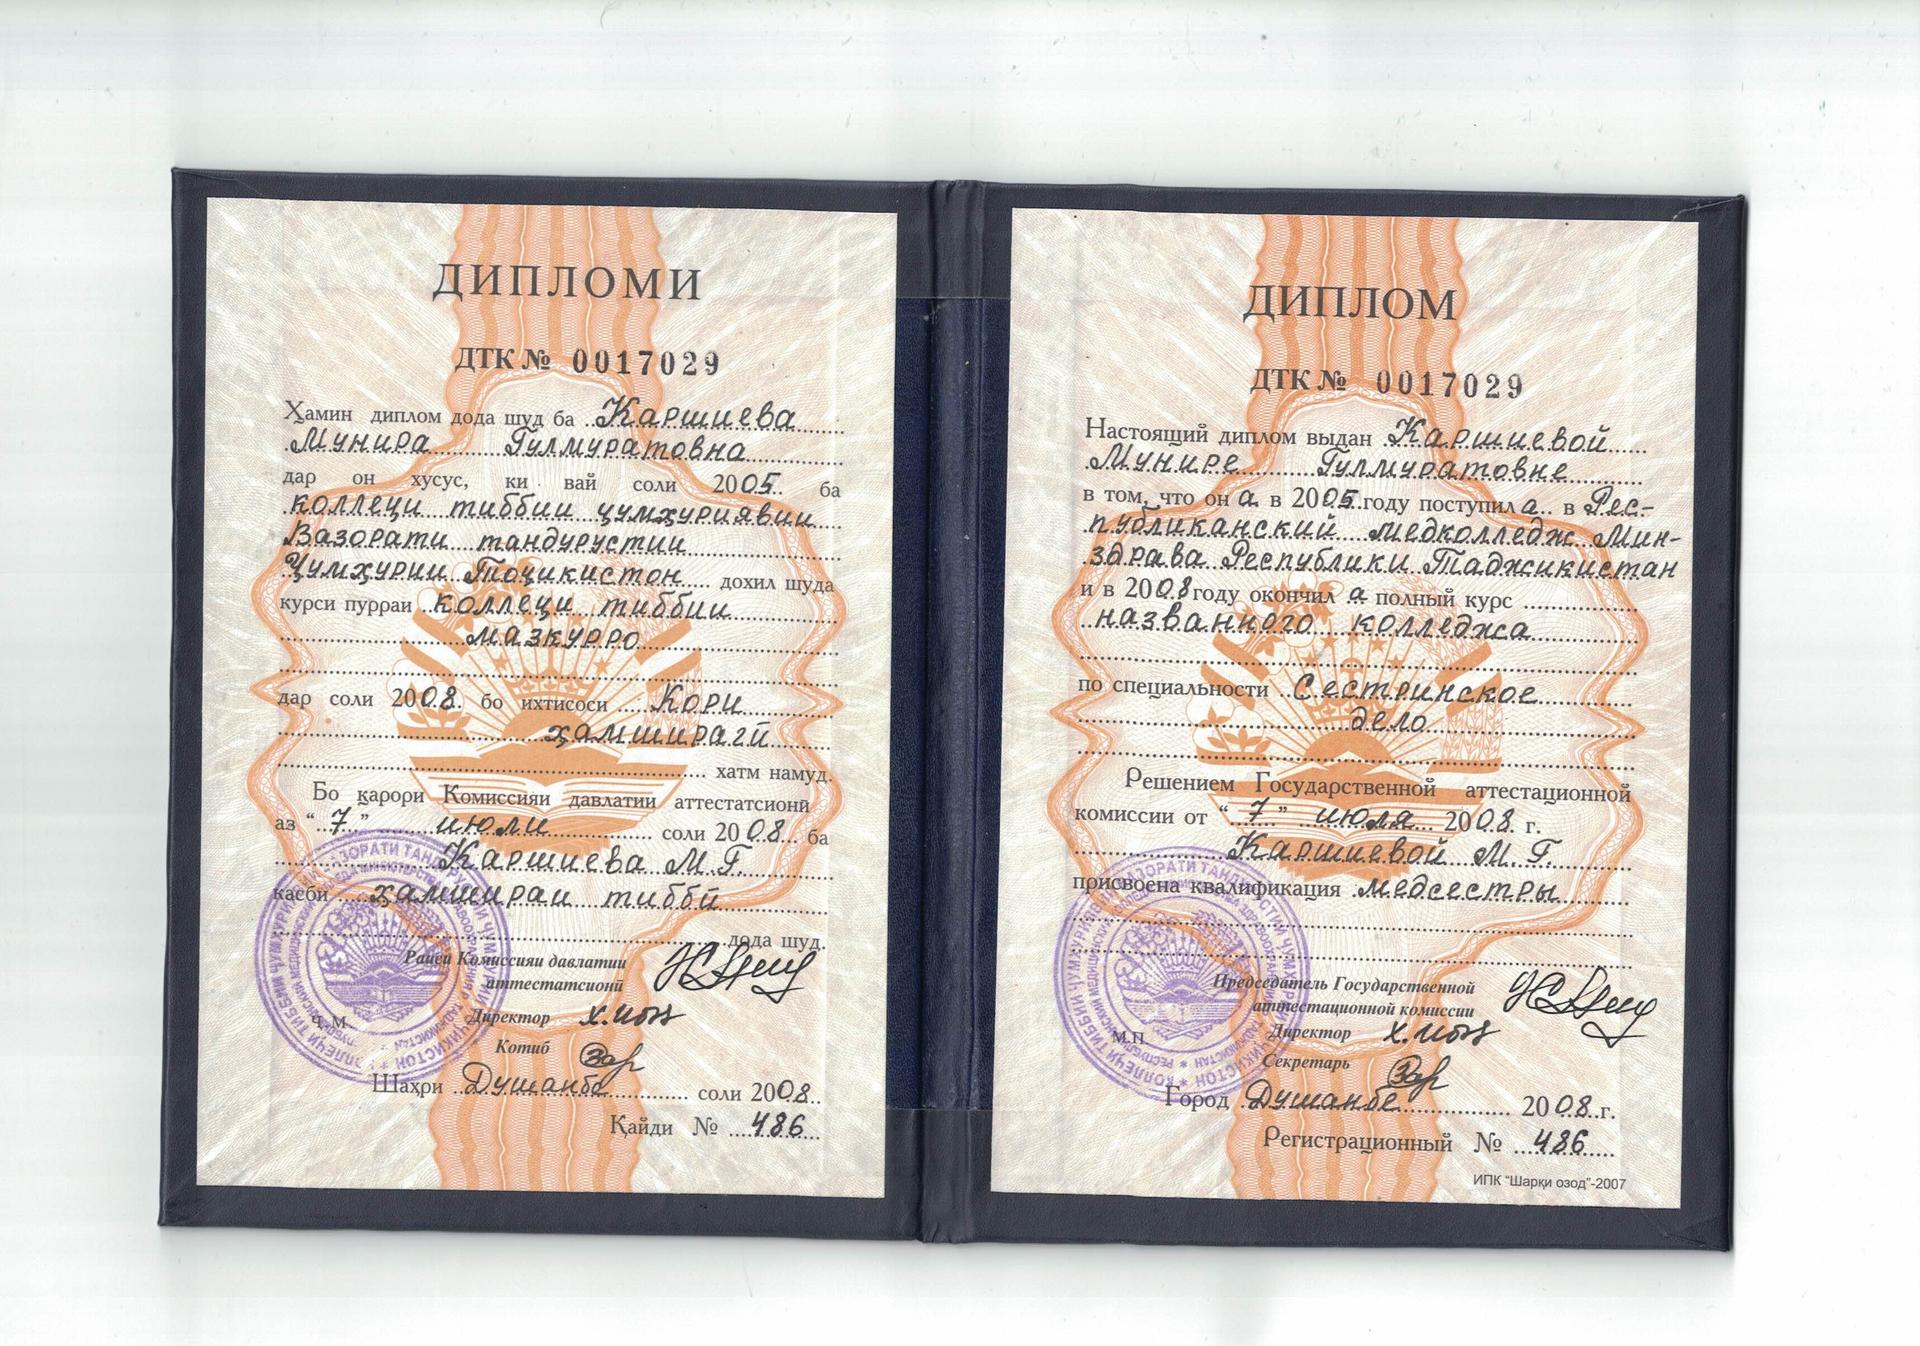 ДИПЛОМИ
ДТК № 0017029
Ҳамин диплом дода шуд ба Каршиева
Мунира Гулмуратовна
дар он хусус, ки вай соли 2005 ба
коллеҷи тиббии ҷумҳуриявии
Вазорати тандурустии
Ҷумҳурии Тоҷикистон дохил шуда
курси пурраи коллеҷи тиббии
мазкурро
дар соли 2008 бо ихтисоси Кори
ҳамширагӣ
хатм намуд.
Бо қарори Комиссияи давлатии аттестатсионӣ
аз "7" июли соли 2008 ба
Каршиева М.Г.
касби ҳамшираи тиббӣ
дода шуд.
Раиси Комиссияи давлатии
аттестатсионӣ
Ҷ.М.
Директор
Котиб
Шаҳри Душанбе соли 2008
Қайди № 486
ДИПЛОМ
ДТК № 0017029
Настоящий диплом выдан Каршиевой
Мунире Гулмуратовне
в том, что он а в 2005 году поступил а в Рес-
публиканский медколледж Мин-
здрава Республики Таджикистан
и в 2008 году окончил а полный курс
названного колледжа
по специальности Сестринское
дело
Решением Государственной аттестационной
комиссии от "7" июля 2008 г.
Каршиевой М.Г.
присвоена квалификация медсестры
Председатель Государственной
аттестационной комиссии
М.П.
Директор
Секретарь
Город Душанбе 2008 г.
Регистрационный № 486
ИПК "Шарқи озод"-2007